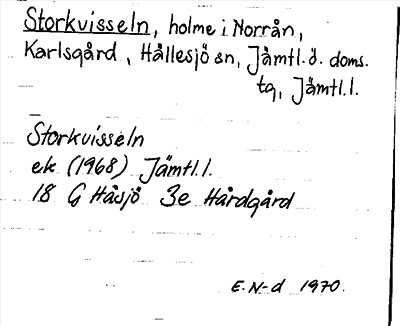 Storkvisseln, holme i Norrån,
Karlsgård, Hållesjö sn, Jämtl.ö. doms.
tg, Jämtl.l.
Storkvisseln
ek (1968) Jämtl.l.
18 G Håsjö 3e Hårdgård
E. N-d 1970.